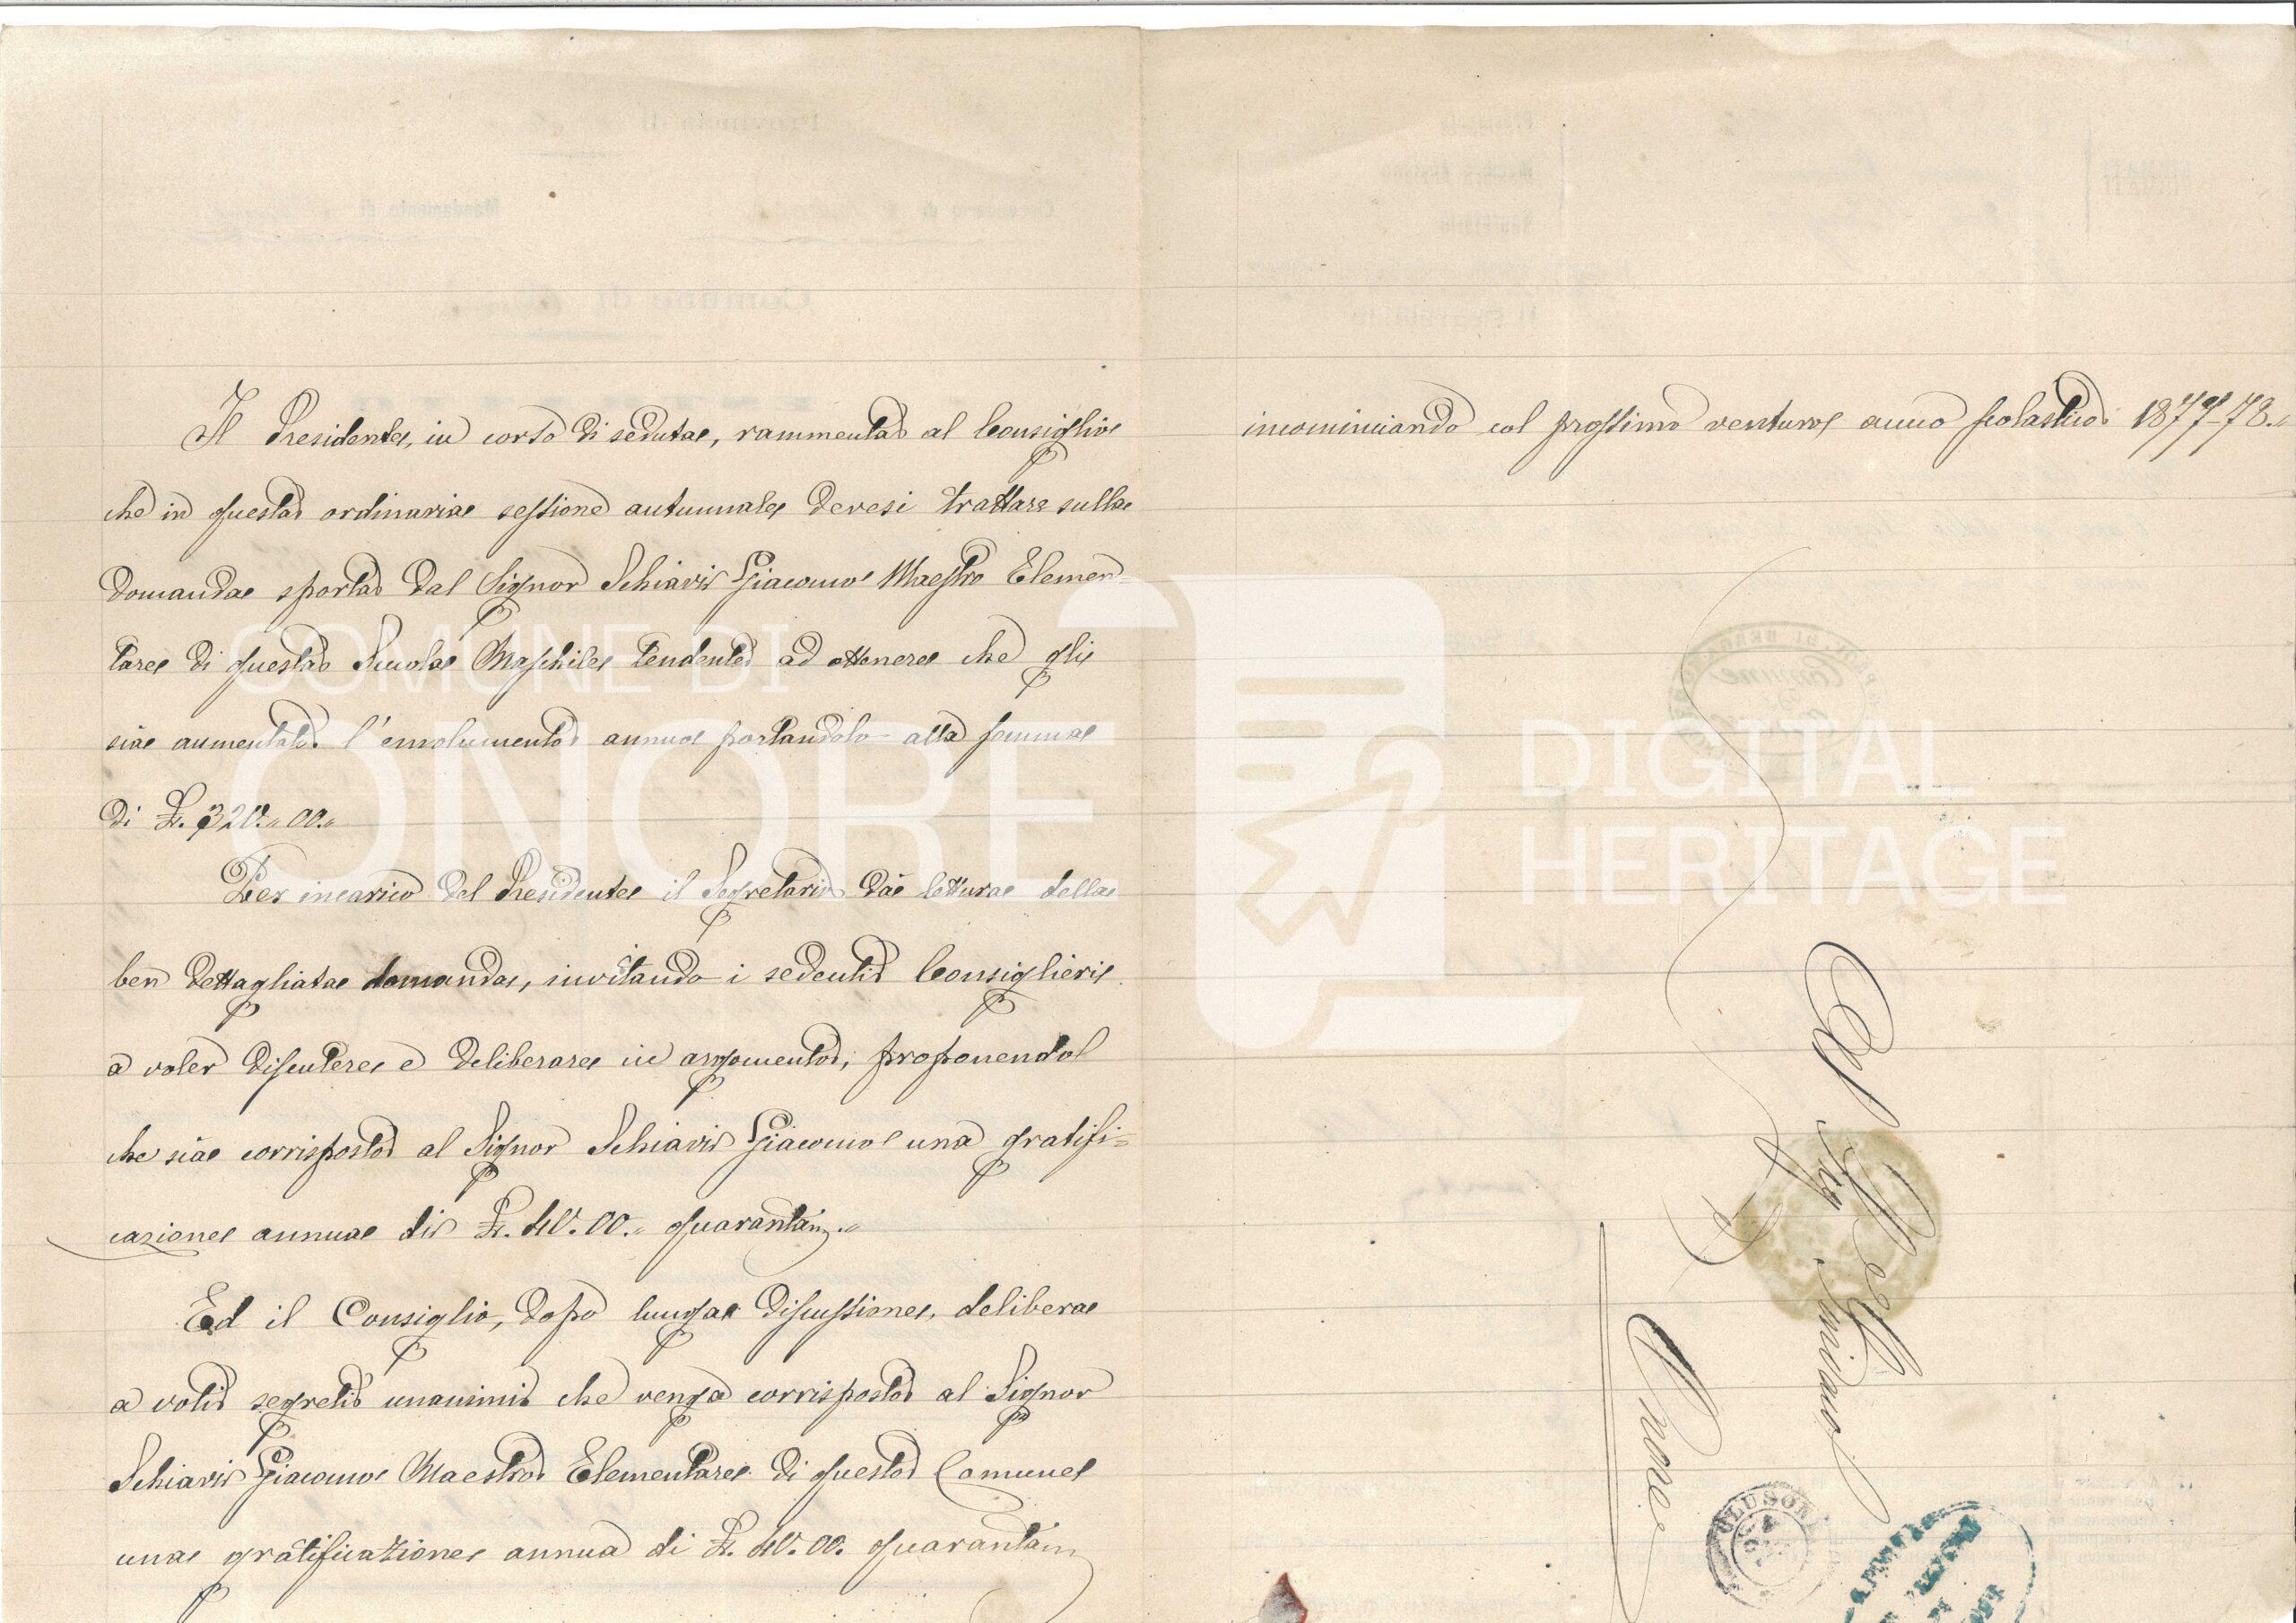 Il Presidente, in corso di seduta, rammenta al Consiglio
che in questa ordinaria sessione autunnale devesi trattare sulla
domanda sporta dal Signor Schiavi Giacomo Maestro Elemen-
tare di questa Scuola Maschile tendente ad ottenere che gli
sia aumentato l'emolumento annuo portandolo alla somma
di L. 320.,00.,
Per incarico del Presidente il Segretario dà lettura della
ben dettagliata domanda, invitando i sedenti Consiglieri
a voler discutere e deliberare in argomento, proponendo
che sia corrisposto al Signor Schiavi Giacomo una gratifi=
cazione annua di L. 40.00., quaranta.,
Ed il Consiglio, dopo lunga discussione, delibera
a voti segreti unanimi che venga corrisposto al Signor
Schiavi Giacomo Maestro Elementare di questo Comune
una gratificazione annua di L. 40.00. quaranta
incominciando col prossimo venturo anno scolastico 1877-78.,
Al
Sig. Sindaco
di
Onore
CLUSONE
COMUNE DI
ONORE
DIGITAL
HERITAGE